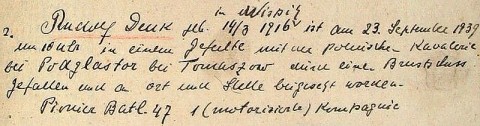 in Wissig
2. Rudolf Denk geb. 14/3 1916 ist am 23. September 1939
in einem Gefechte mit der polnischen Kavalerie
bei Podglastor bei Tomaszow durch einen Brustschuss
gefallen und an ort und Stelle beigesetzt worden.
Pionier Batl. 47 1 (motorisierte) Kompagnie